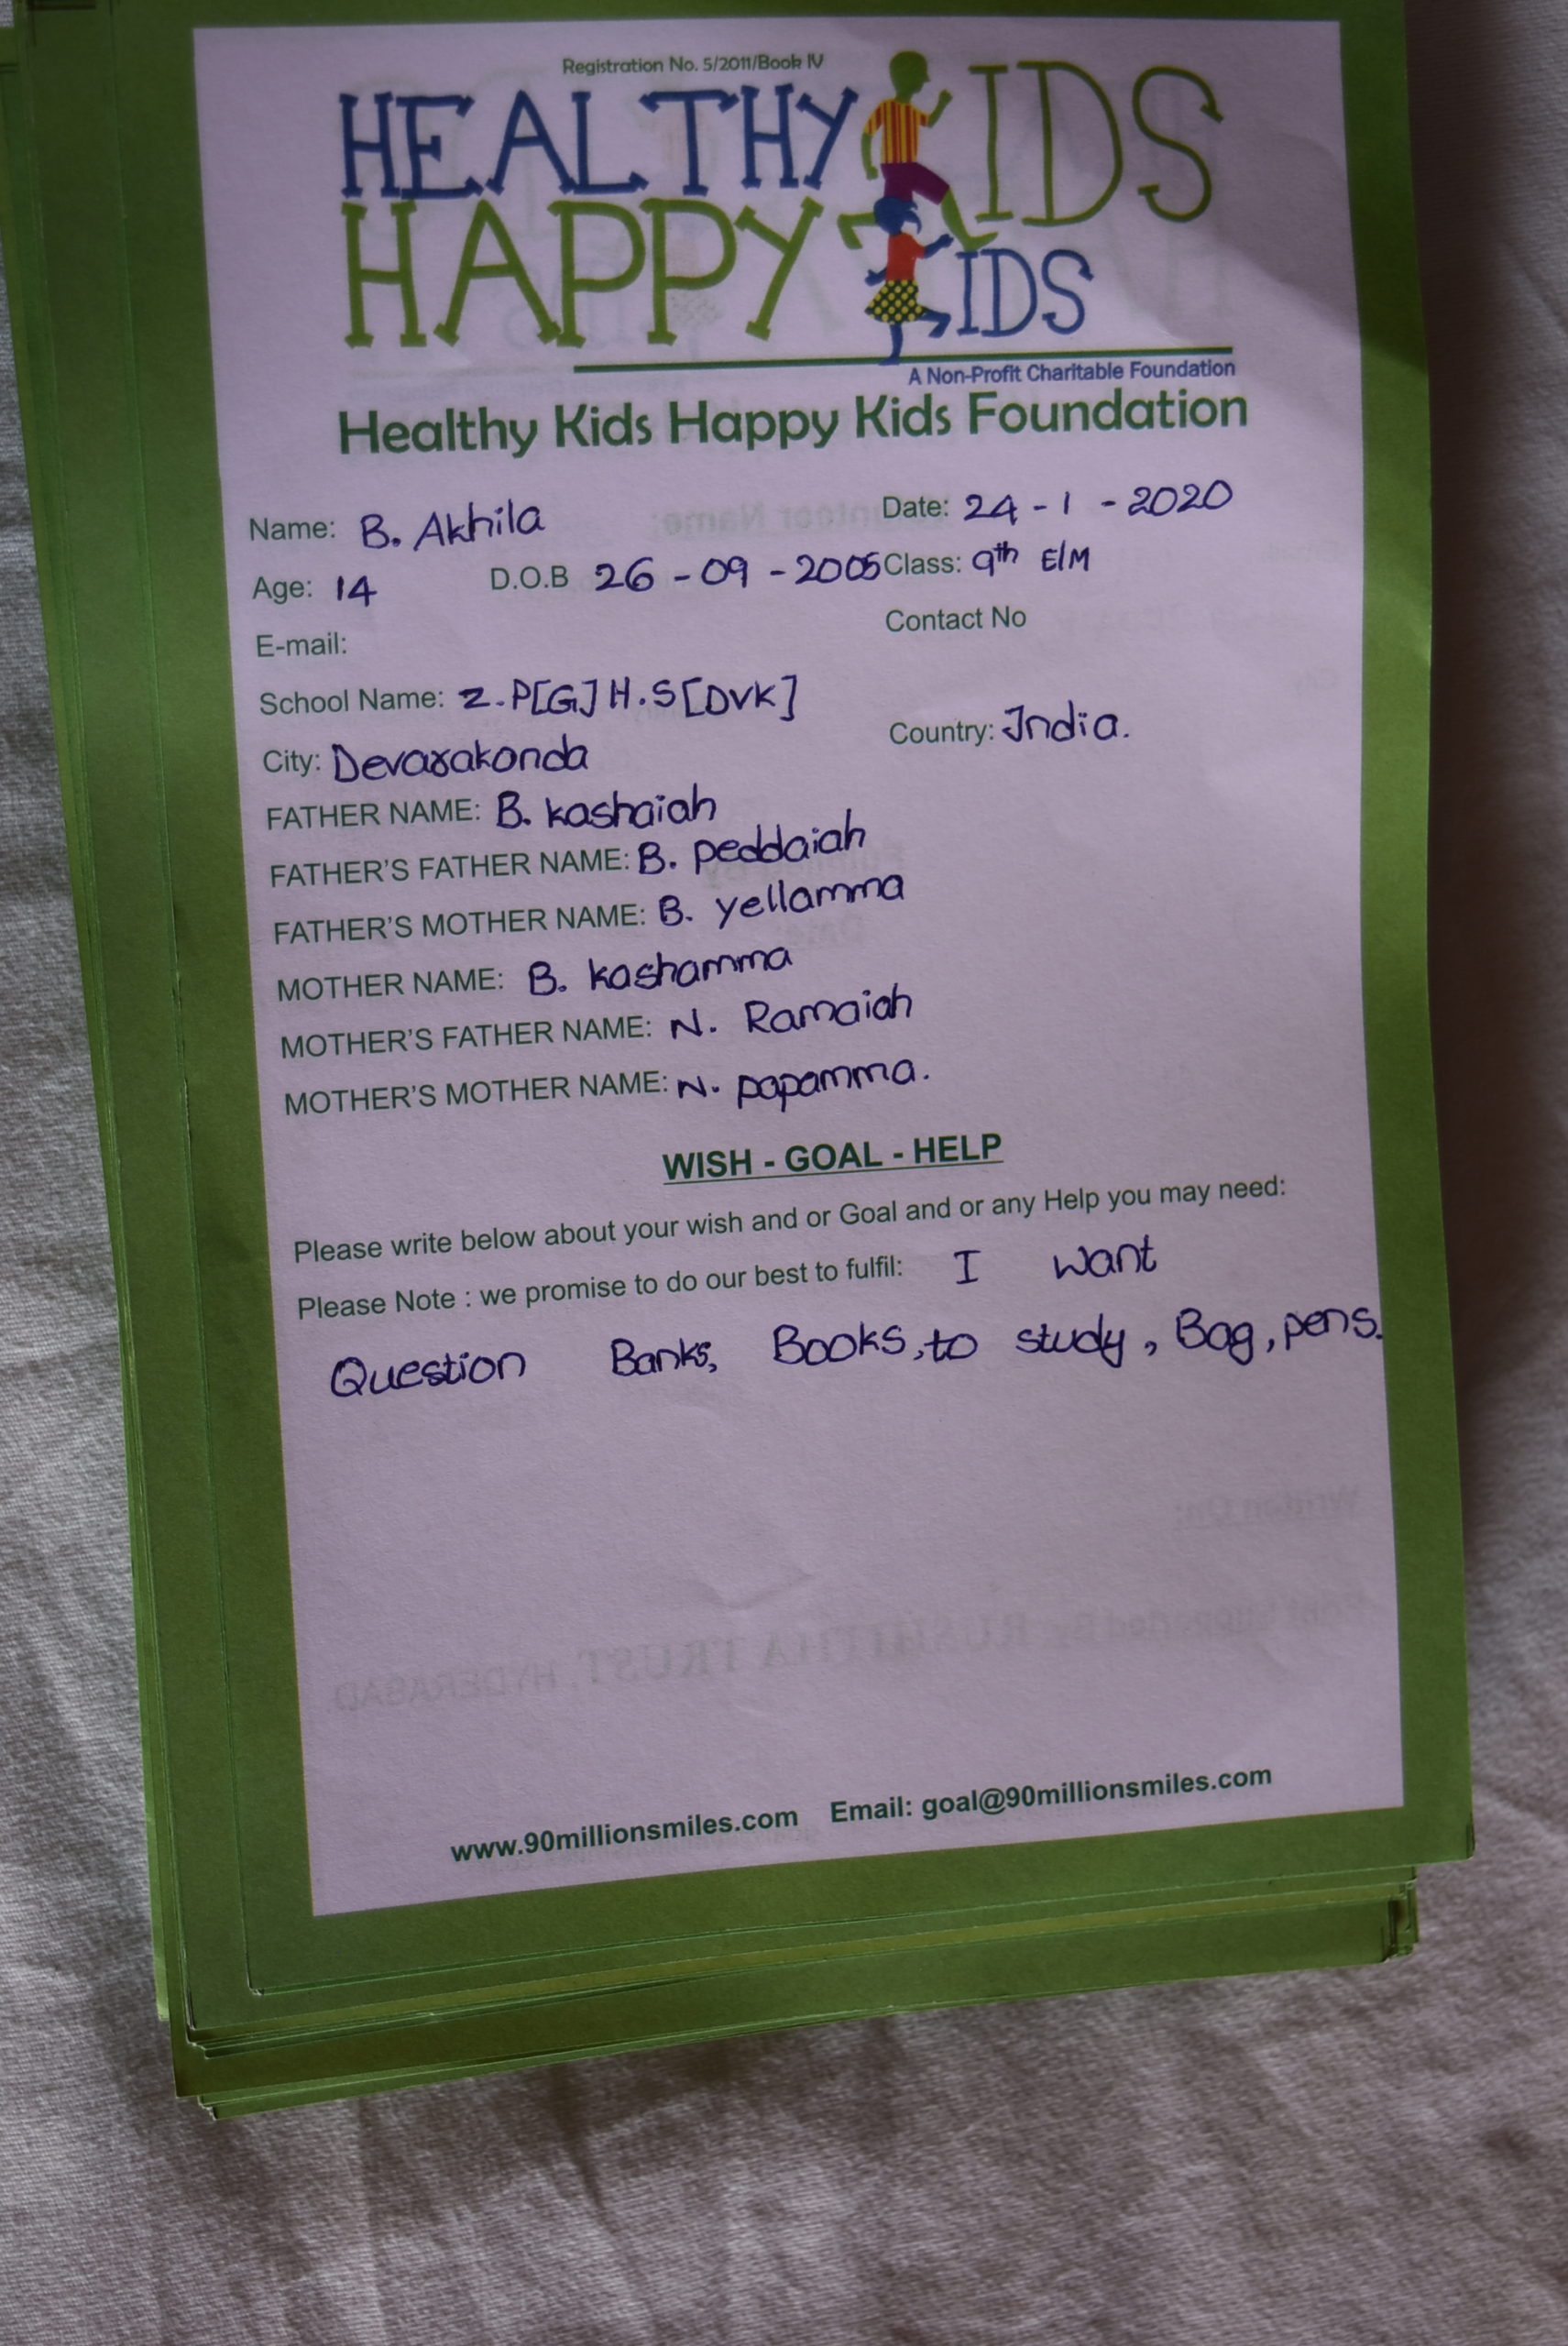 Registration No. 5/2011/Book IV
HEALTHY KIDS
HAPPY KIDS
A Non-Profit Charitable Foundation
Healthy Kids Happy Kids Foundation
Name: B. Akhila Date: 24 - 1 - 2020
Age: 14 D.O.B 26 - 09 - 2005 Class: 9th E/M
E-mail: Contact No
School Name: Z.P[G] H.S [DVK]
City: Devarakonda Country: India.
FATHER NAME: B. kashaiah
FATHER'S FATHER NAME: B. peddaiah
FATHER'S MOTHER NAME: B. yellamma
MOTHER NAME: B. kashamma
MOTHER'S FATHER NAME: N. Ramaiah
MOTHER'S MOTHER NAME: N. papamma.
WISH - GOAL - HELP
Please write below about your wish and or Goal and or any Help you may need:
Please Note : we promise to do our best to fulfil: I want
Question Banks, Books, to study, Bag, pens.
www.90millionsmiles.com Email: goal@90millionsmiles.com